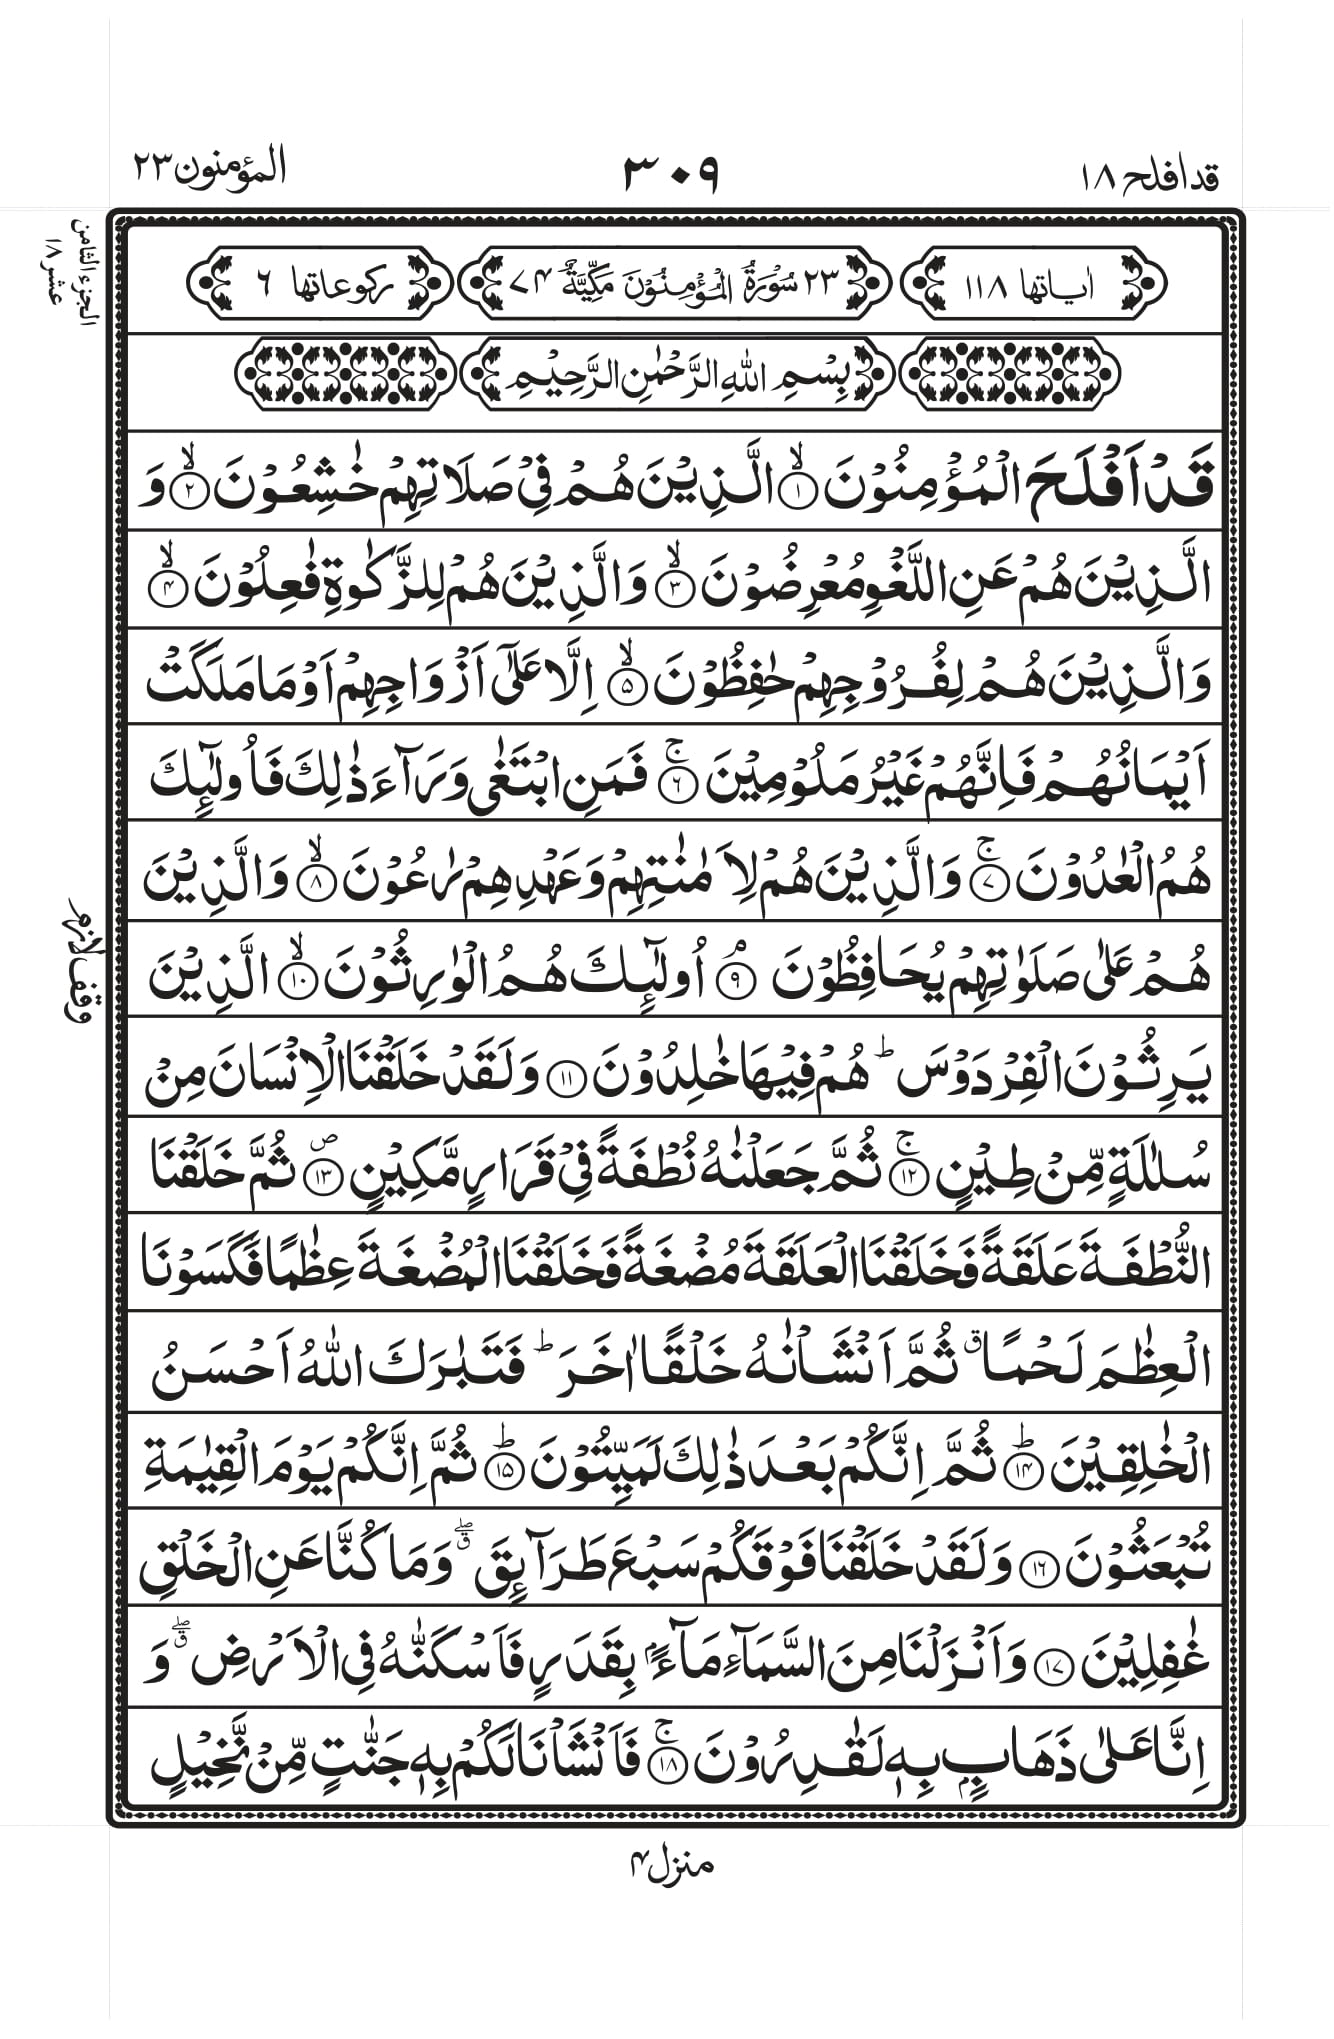 قد افلح ١٨
٣٠٩
المؤمنون ٢٣
الجزء الثامن
عشر ١٨
اٰیاتها ١١٨
٢٣ سُوْرَةُ الْمُؤْمِنُوْنَ مَكِّیَّةٌ ٧٤
ركوعاتها ٦
بِسْمِ اللّٰهِ الرَّحْمٰنِ الرَّحِیْمِ
قَدْ اَفْلَحَ الْمُؤْمِنُوْنَ ۙ﴿١﴾ الَّذِیْنَ هُمْ فِیْ صَلَاتِهِمْ خٰشِعُوْنَ ۙ﴿٢﴾ وَ
الَّذِیْنَ هُمْ عَنِ اللَّغْوِ مُعْرِضُوْنَ ۙ﴿٣﴾ وَالَّذِیْنَ هُمْ لِلزَّكٰوةِ فٰعِلُوْنَ ۙ﴿۴﴾
وَالَّذِیْنَ هُمْ لِفُرُوْجِهِمْ حٰفِظُوْنَ ۙ﴿۵﴾ اِلَّا عَلٰۤی اَزْوَاجِهِمْ اَوْ مَا مَلَكَتْ
اَیْمَانُهُمْ فَاِنَّهُمْ غَیْرُ مَلُوْمِیْنَ ۚ﴿٦﴾ فَمَنِ ابْتَغٰی وَرَآءَ ذٰلِكَ فَاُولٰٓئِكَ
هُمُ الْعٰدُوْنَ ۚ﴿٧﴾ وَالَّذِیْنَ هُمْ لِاَمٰنٰتِهِمْ وَعَهْدِهِمْ رٰعُوْنَ ۙ﴿٨﴾ وَالَّذِیْنَ
هُمْ عَلٰی صَلَوٰتِهِمْ یُحَافِظُوْنَ ۘ﴿٩﴾ اُولٰٓئِكَ هُمُ الْوٰرِثُوْنَ ۙ﴿١٠﴾ الَّذِیْنَ
وقف لازم
یَرِثُوْنَ الْفِرْدَوْسَ ؕ هُمْ فِیْهَا خٰلِدُوْنَ ﴿١١﴾ وَلَقَدْ خَلَقْنَا الْاِنْسَانَ مِنْ
سُلٰلَةٍ مِّنْ طِیْنٍ ۚ﴿١٢﴾ ثُمَّ جَعَلْنٰهُ نُطْفَةً فِیْ قَرَارٍ مَّكِیْنٍ ۪﴿١٣﴾ ثُمَّ خَلَقْنَا
النُّطْفَةَ عَلَقَةً فَخَلَقْنَا الْعَلَقَةَ مُضْغَةً فَخَلَقْنَا الْمُضْغَةَ عِظٰمًا فَكَسَوْنَا
الْعِظٰمَ لَحْمًا ق ثُمَّ اَنْشَاْنٰهُ خَلْقًا اٰخَرَ ؕ فَتَبٰرَكَ اللّٰهُ اَحْسَنُ
الْخٰلِقِیْنَ ؕ﴿١۴﴾ ثُمَّ اِنَّكُمْ بَعْدَ ذٰلِكَ لَمَیِّتُوْنَ ؕ﴿١۵﴾ ثُمَّ اِنَّكُمْ یَوْمَ الْقِیٰمَةِ
تُبْعَثُوْنَ ﴿١٦﴾ وَلَقَدْ خَلَقْنَا فَوْقَكُمْ سَبْعَ طَرَآئِقَ ۖق وَمَا كُنَّا عَنِ الْخَلْقِ
غٰفِلِیْنَ ﴿١٧﴾ وَاَنْزَلْنَا مِنَ السَّمَآءِ مَآءًۢ بِقَدَرٍ فَاَسْكَنّٰهُ فِی الْاَرْضِ ۖق وَ
اِنَّا عَلٰی ذَهَابٍۭ بِهٖ لَقٰدِرُوْنَ ۚ﴿١٨﴾ فَاَنْشَاْنَا لَكُمْ بِهٖ جَنّٰتٍ مِّنْ نَّخِیْلٍ
منزل ۴